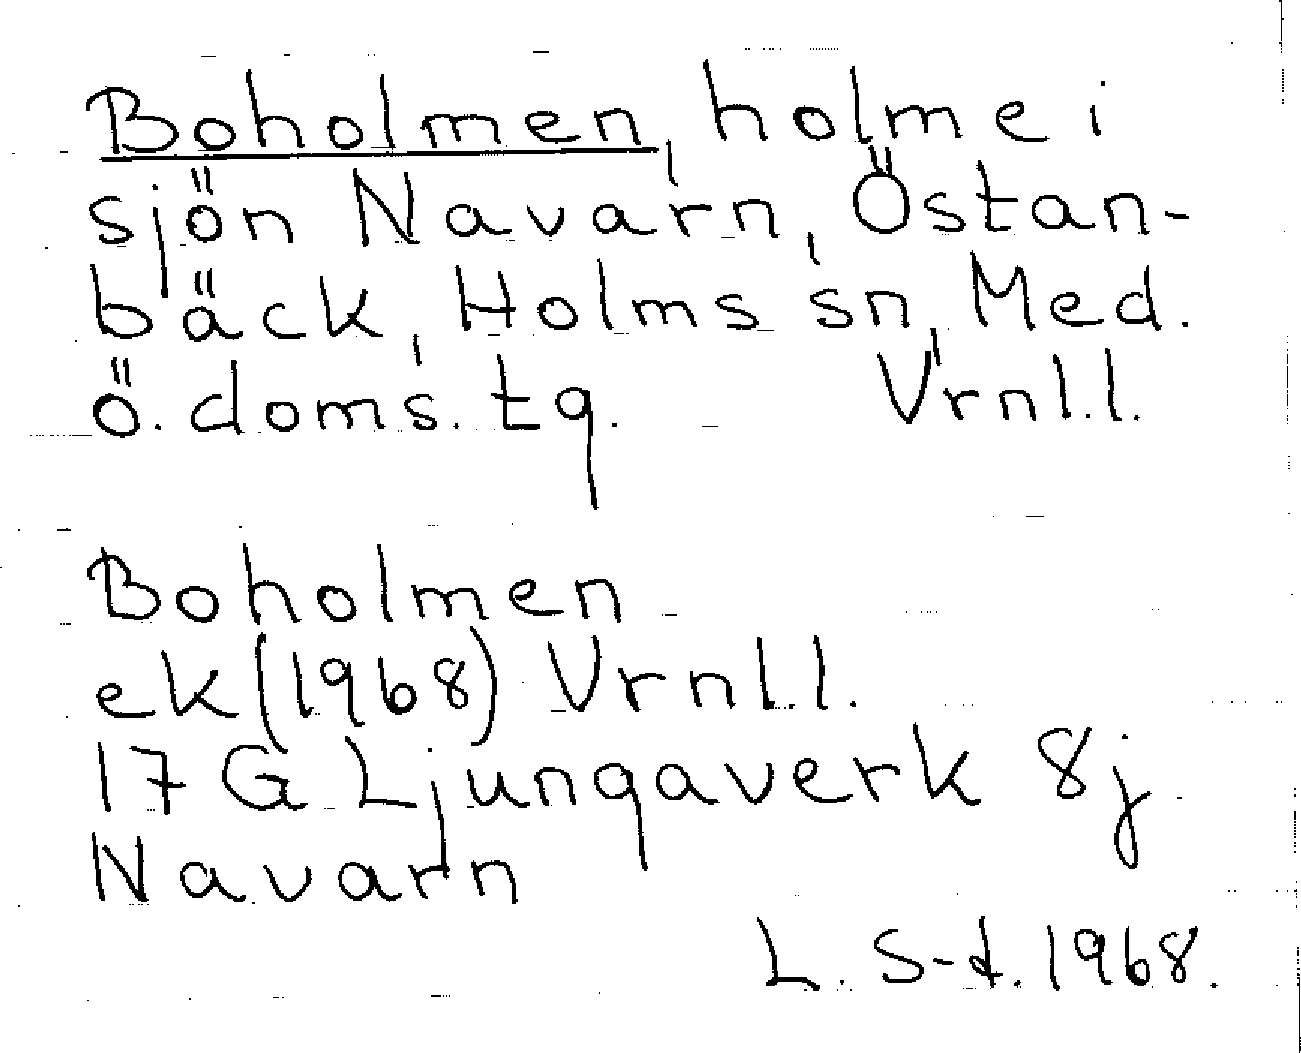 Boholmen, holme i
sjön Navarn, Östan-
bäck, Holms sn, Med.
ö. doms. tg. Vrnl.l.
Boholmen
ek (1968) Vrnl.l.
17 G Ljungaverk 8j
Navarn
L. S-d. 1968.